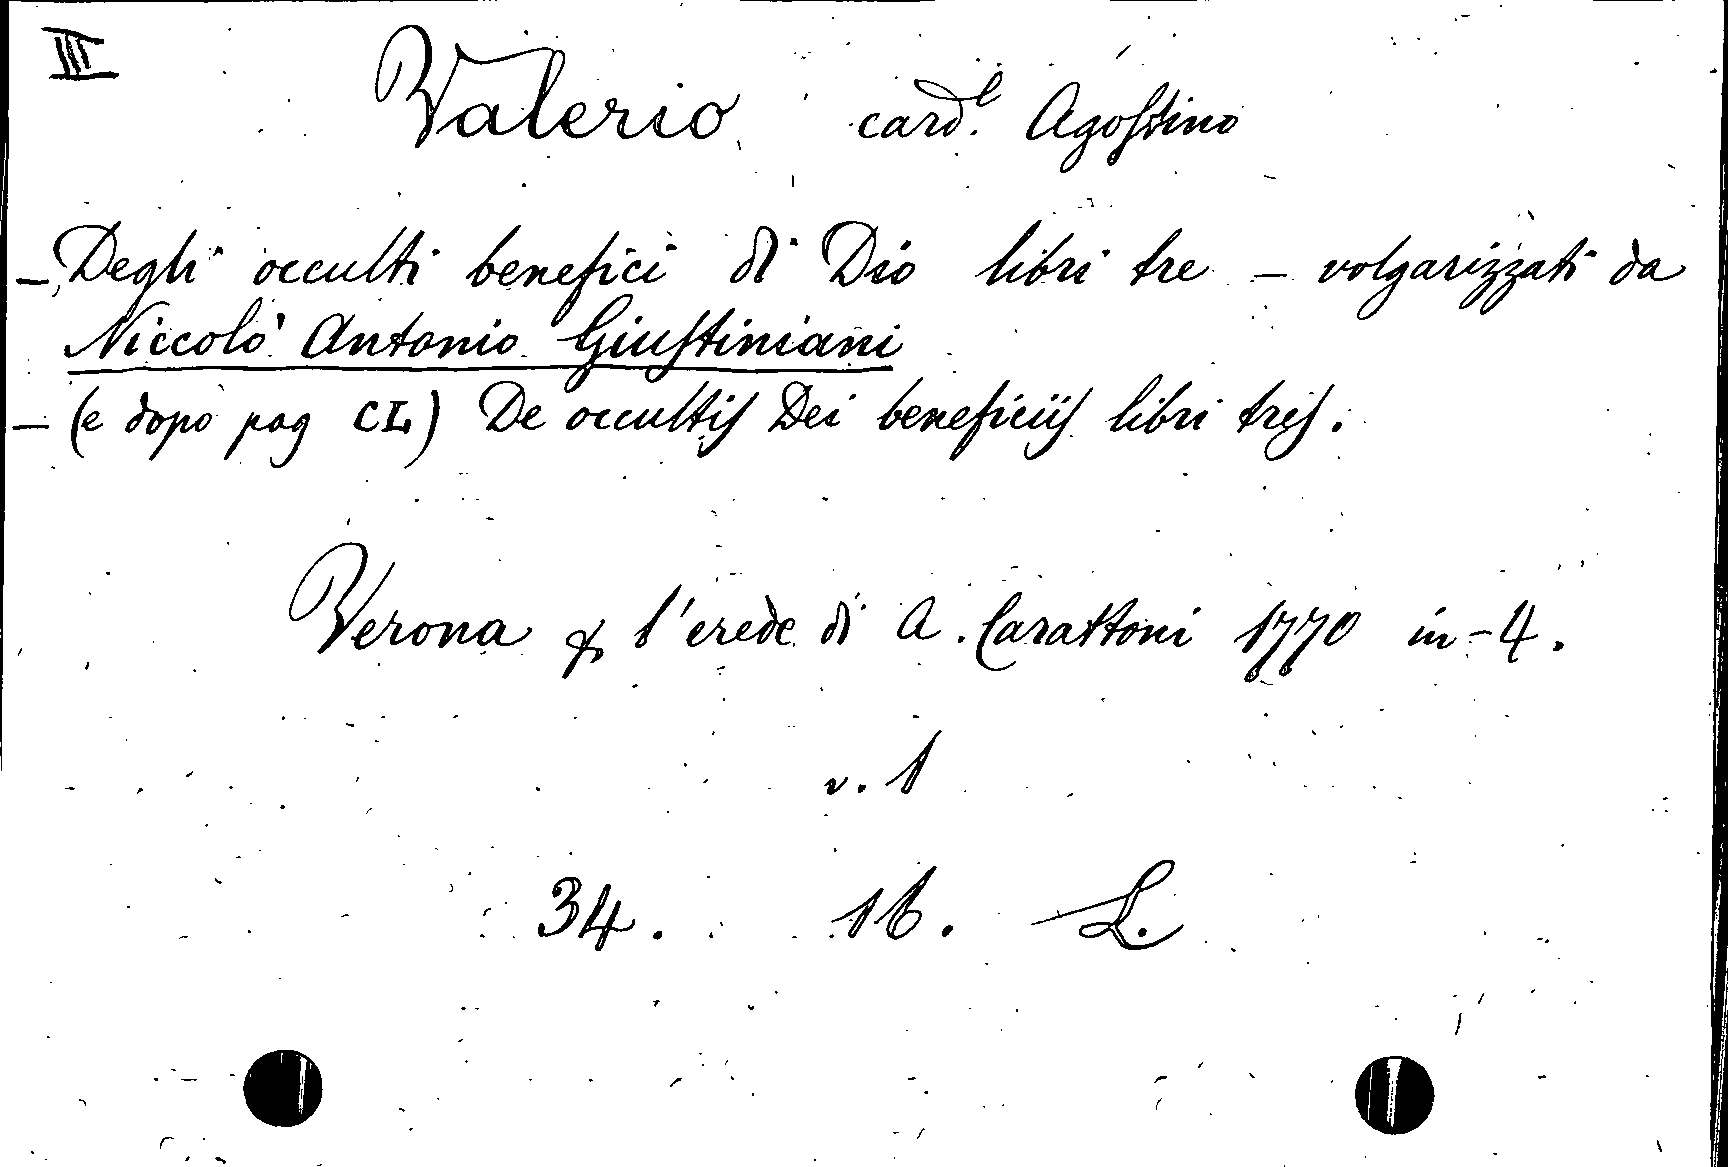 III
Valerio card.l Agostino
- Degli occulti benefici di Dio libri tre - volgarizzati da
Niccolò Antonio Giustiniani
- (e dopo pag CL) De occultis Dei beneficiis libri tres.
Verona p. l'erede di A. Carattoni 1770 in-4.
v. 1
34. 16. L.